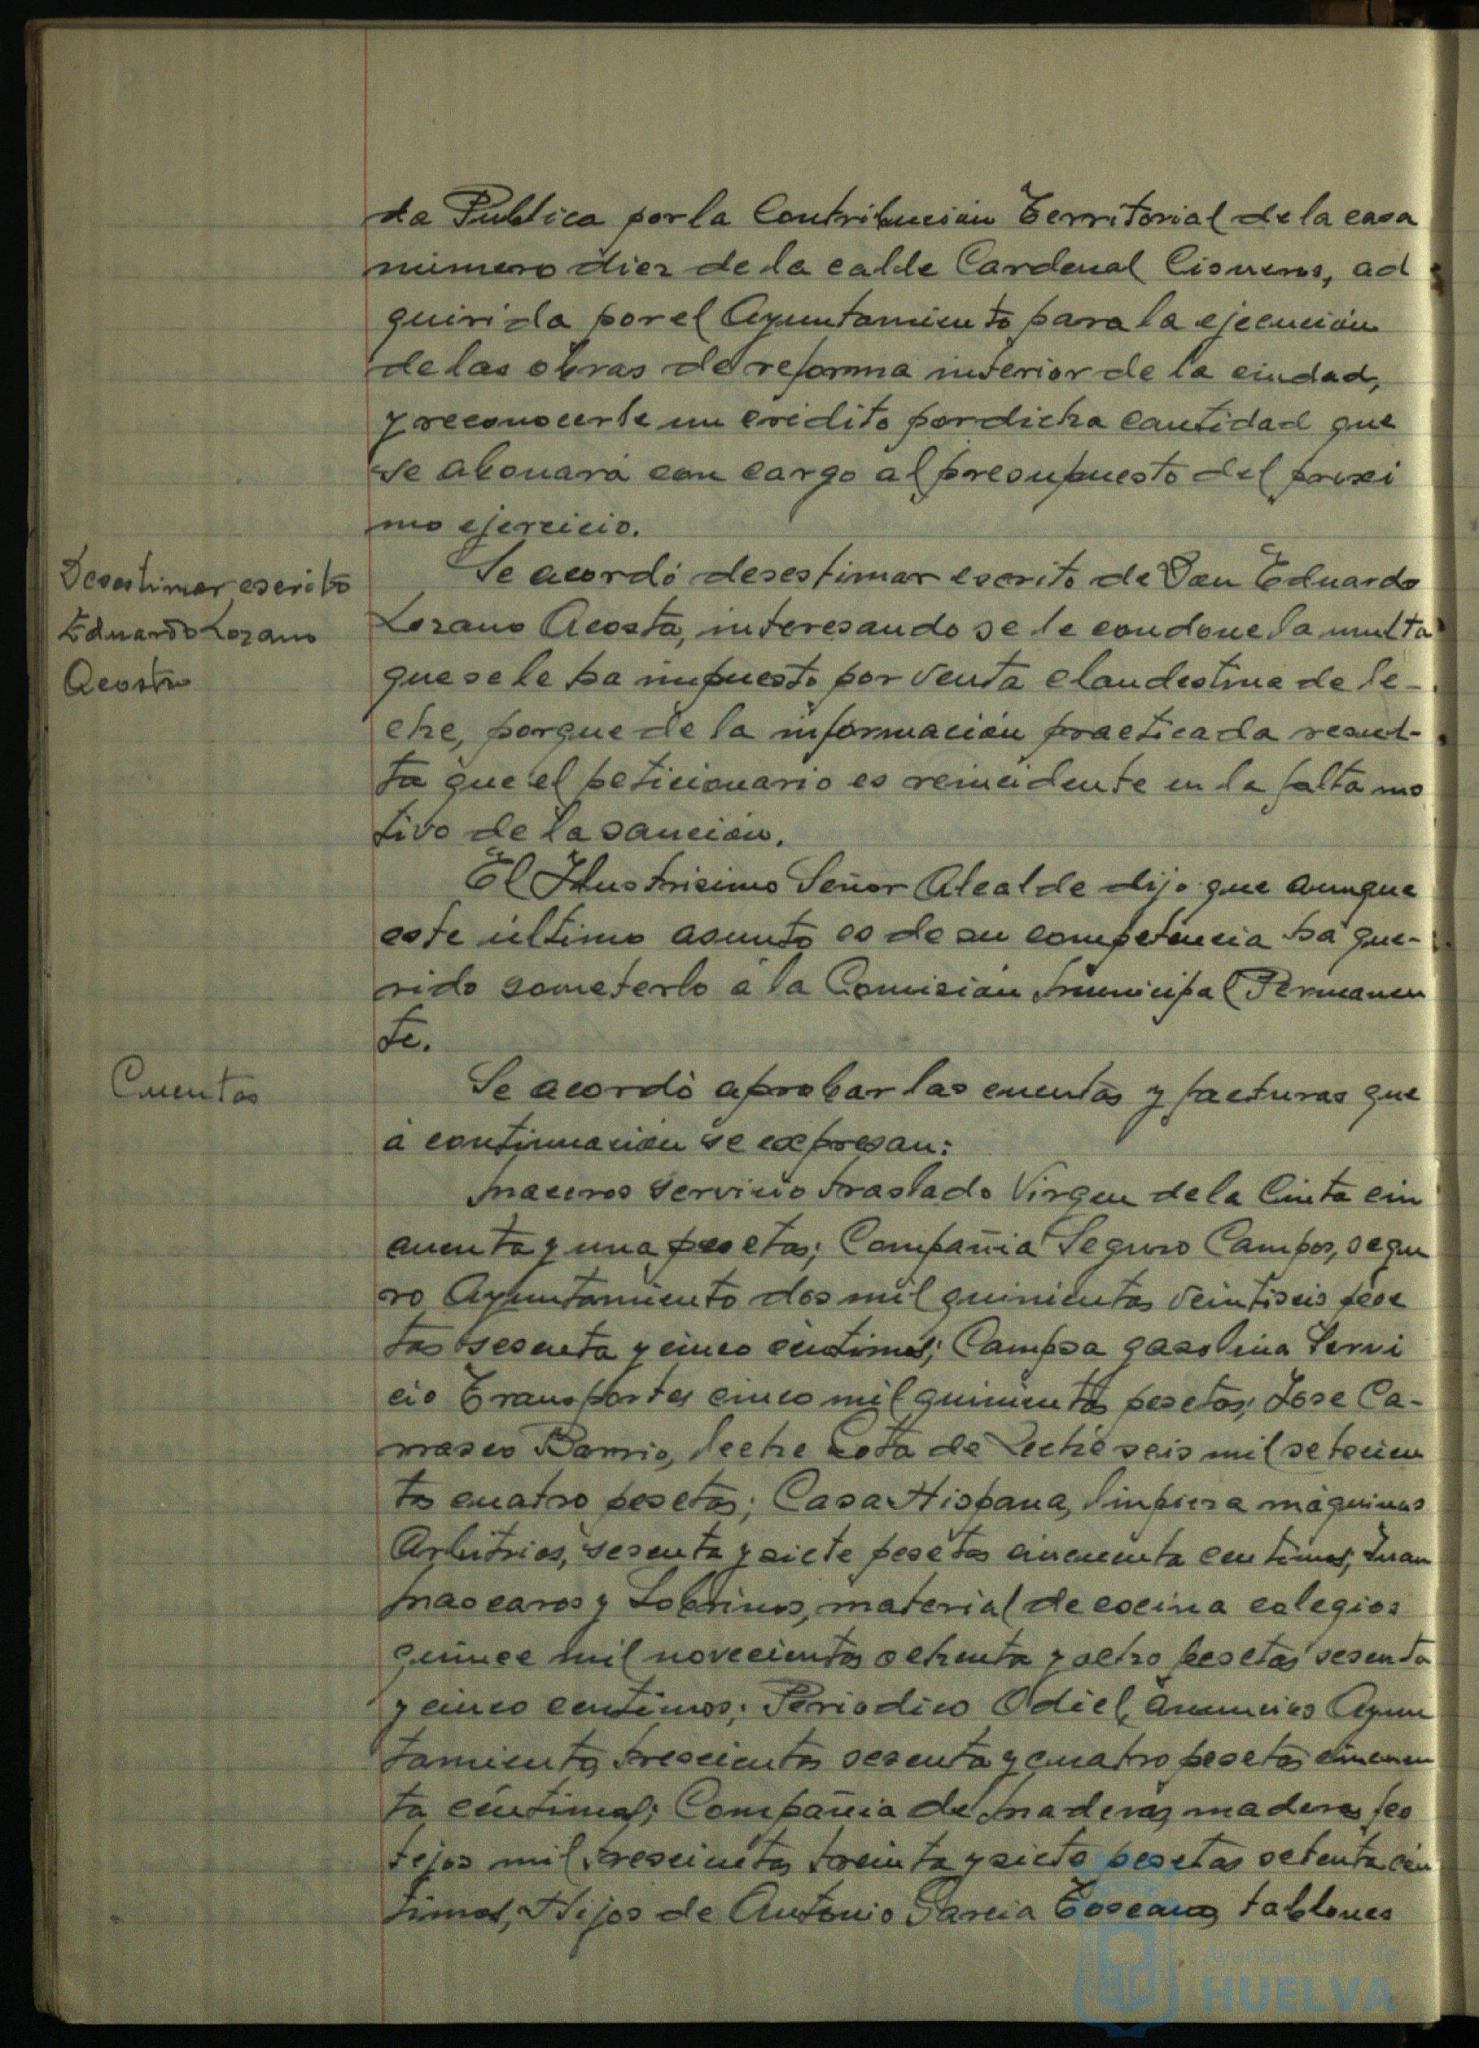 da Publica por la Contribución Territorial de la casa
número diez de la calle Cardenal Cisneros, ad
quirida por el Ayuntamiento para la ejecución
de las obras de reforma interior de la ciudad,
y reconocerle un crédito por dicha cantidad que
se abonará con cargo al presupuesto del proxi
mo ejercicio.
Desestimar escrito
Eduardo Lozano
Acosta
Se acordó desestimar escrito de Don Eduardo
Lozano Acosta, interesando se le condone la multa
que se le ha impuesto por venta clandestina de le-
che, porque de la información practicada resul-
ta que el peticionario es reincidente en la falta mo
tivo de la sanción.
El Ilustrisimo Señor Alcalde dijo que aunque
este último asunto es de su competencia ha que-
rido someterlo a la Comisión Municipal Permanen
te.
Cuentas
Se acordó aprobar las cuentas y facturas que
a continuación se expresan:
Maceros servicio traslado Virgen de la Cinta cin
cuenta y una pesetas; Compañia Seguro Campos, segu
ro Ayuntamiento dos mil quinientas veintiseis pese
tas sesenta y cinco céntimos; Campsa gasolina Servi
cio Transportes cinco mil quinientas pesetas; Jose Ca-
rrasco Barrio, leche Gota de Leche seis mil setecien
tas cuatro pesetas; Casa Hispana, limpieza máquinas
Arbitrios, sesenta y siete pesetas cincuenta centimos; Juan
Mascaros y Sobrinos, material de cocina colegios
quince mil novecientas ochenta y ocho pesetas sesenta
y cinco centimos; Periodico Odiel, anuncios Ayun
tamiento, trescientas sesenta y cuatro pesetas cincuen
ta céntimos; Compañia de Maderas, maderas fes
tejos mil trescientas treinta y siete pesetas setenta cén
timos, Hijos de Antonio Garcia Toscano, tablones
Ayuntamiento de
HUELVA